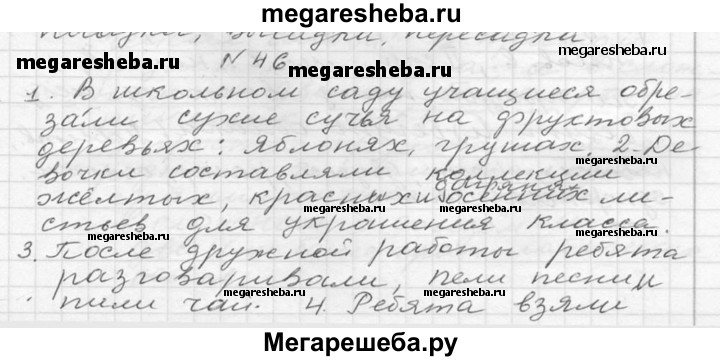 megaresheba.ru
посадки, ..., пересадки.
megaresheba.ru № 46 megaresheba.ru
1. В школьном саду учащиеся обре-
megaresheba.ru megaresheba.ru
зали сухие сучья на фруктовых
деревьях: яблонях, грушах. 2. Де
megaresheba.ru
вочки составляли коллекции
багряных
жёлтых, красных и осенних ли-
megaresheba.ru megaresheba.ru
стьев для украшения класса.
3. После дружной работы ребята
megaresheba.ru
разговаривали, пели песни и
megaresheba.ru megaresheba.ru
пили чай. 4. Ребята взяли
Мегарешеба.ру